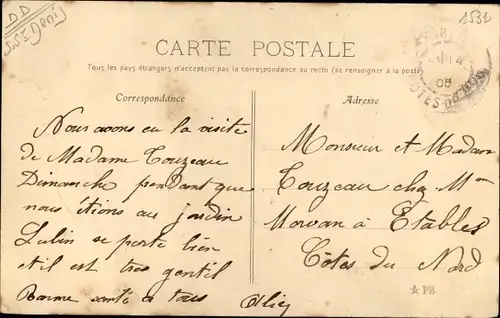 DD
St Denis
1531
CARTE POSTALE
Tous les pays étrangers n'acceptent pas la correspondance au recto (se renseigner à la poste
Correspondance
Nous avons eu la visite
de Madame Touzeau
Dimanche pendant que
nous étions au jardin
Lulin se porte bien
et il est très gentil
Bonne santé à tous
Adresse
Monsieur et Madame
Touzeau chez Mme
Morvan à Etables
Côtes du Nord
14
05
CÔTES-DU-NORD
PB